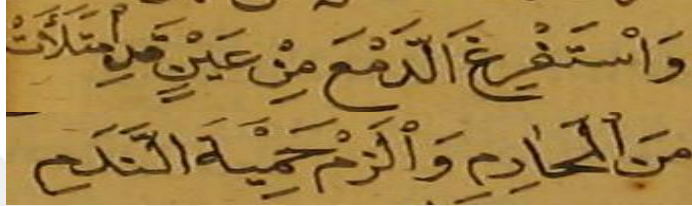 وَاسْتَفْرِغِ الدَّمْعَ مِنْ عَيْنٍ قَدِ امْتَلَأَتْ
مِنَ الْمَحَارِمِ وَالْزَمْ حِمْيَةَ النَّدَمِ